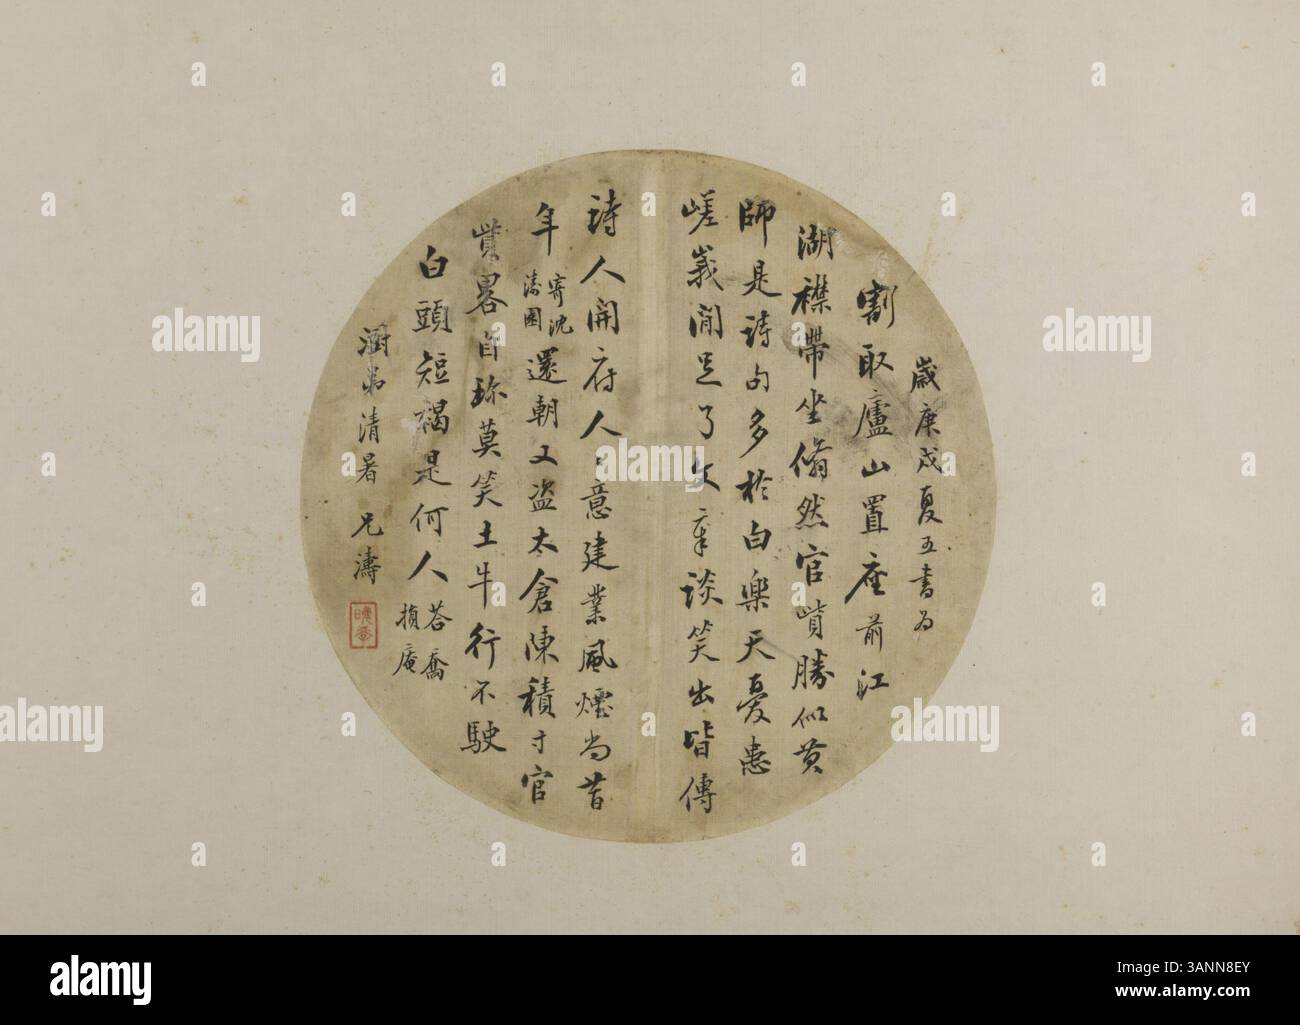 歲庚戌夏五書為
割取廬山置座前江
湖襟帶坐翛然官貲勝似黃
師是詩句多於白樂天憂患
嵯峩閒足了文章談笑出皆傳
詩人開府人人意建業風煙尚昔
年寄沈濤園還朝又盜太倉陳積寸官
貲畧自珎莫笑土牛行不駛
白頭短褐是何人荅喬損庵
澍弟清暑 兄濤
alamy
Image ID: 3ANN8EY
www.alamy.com